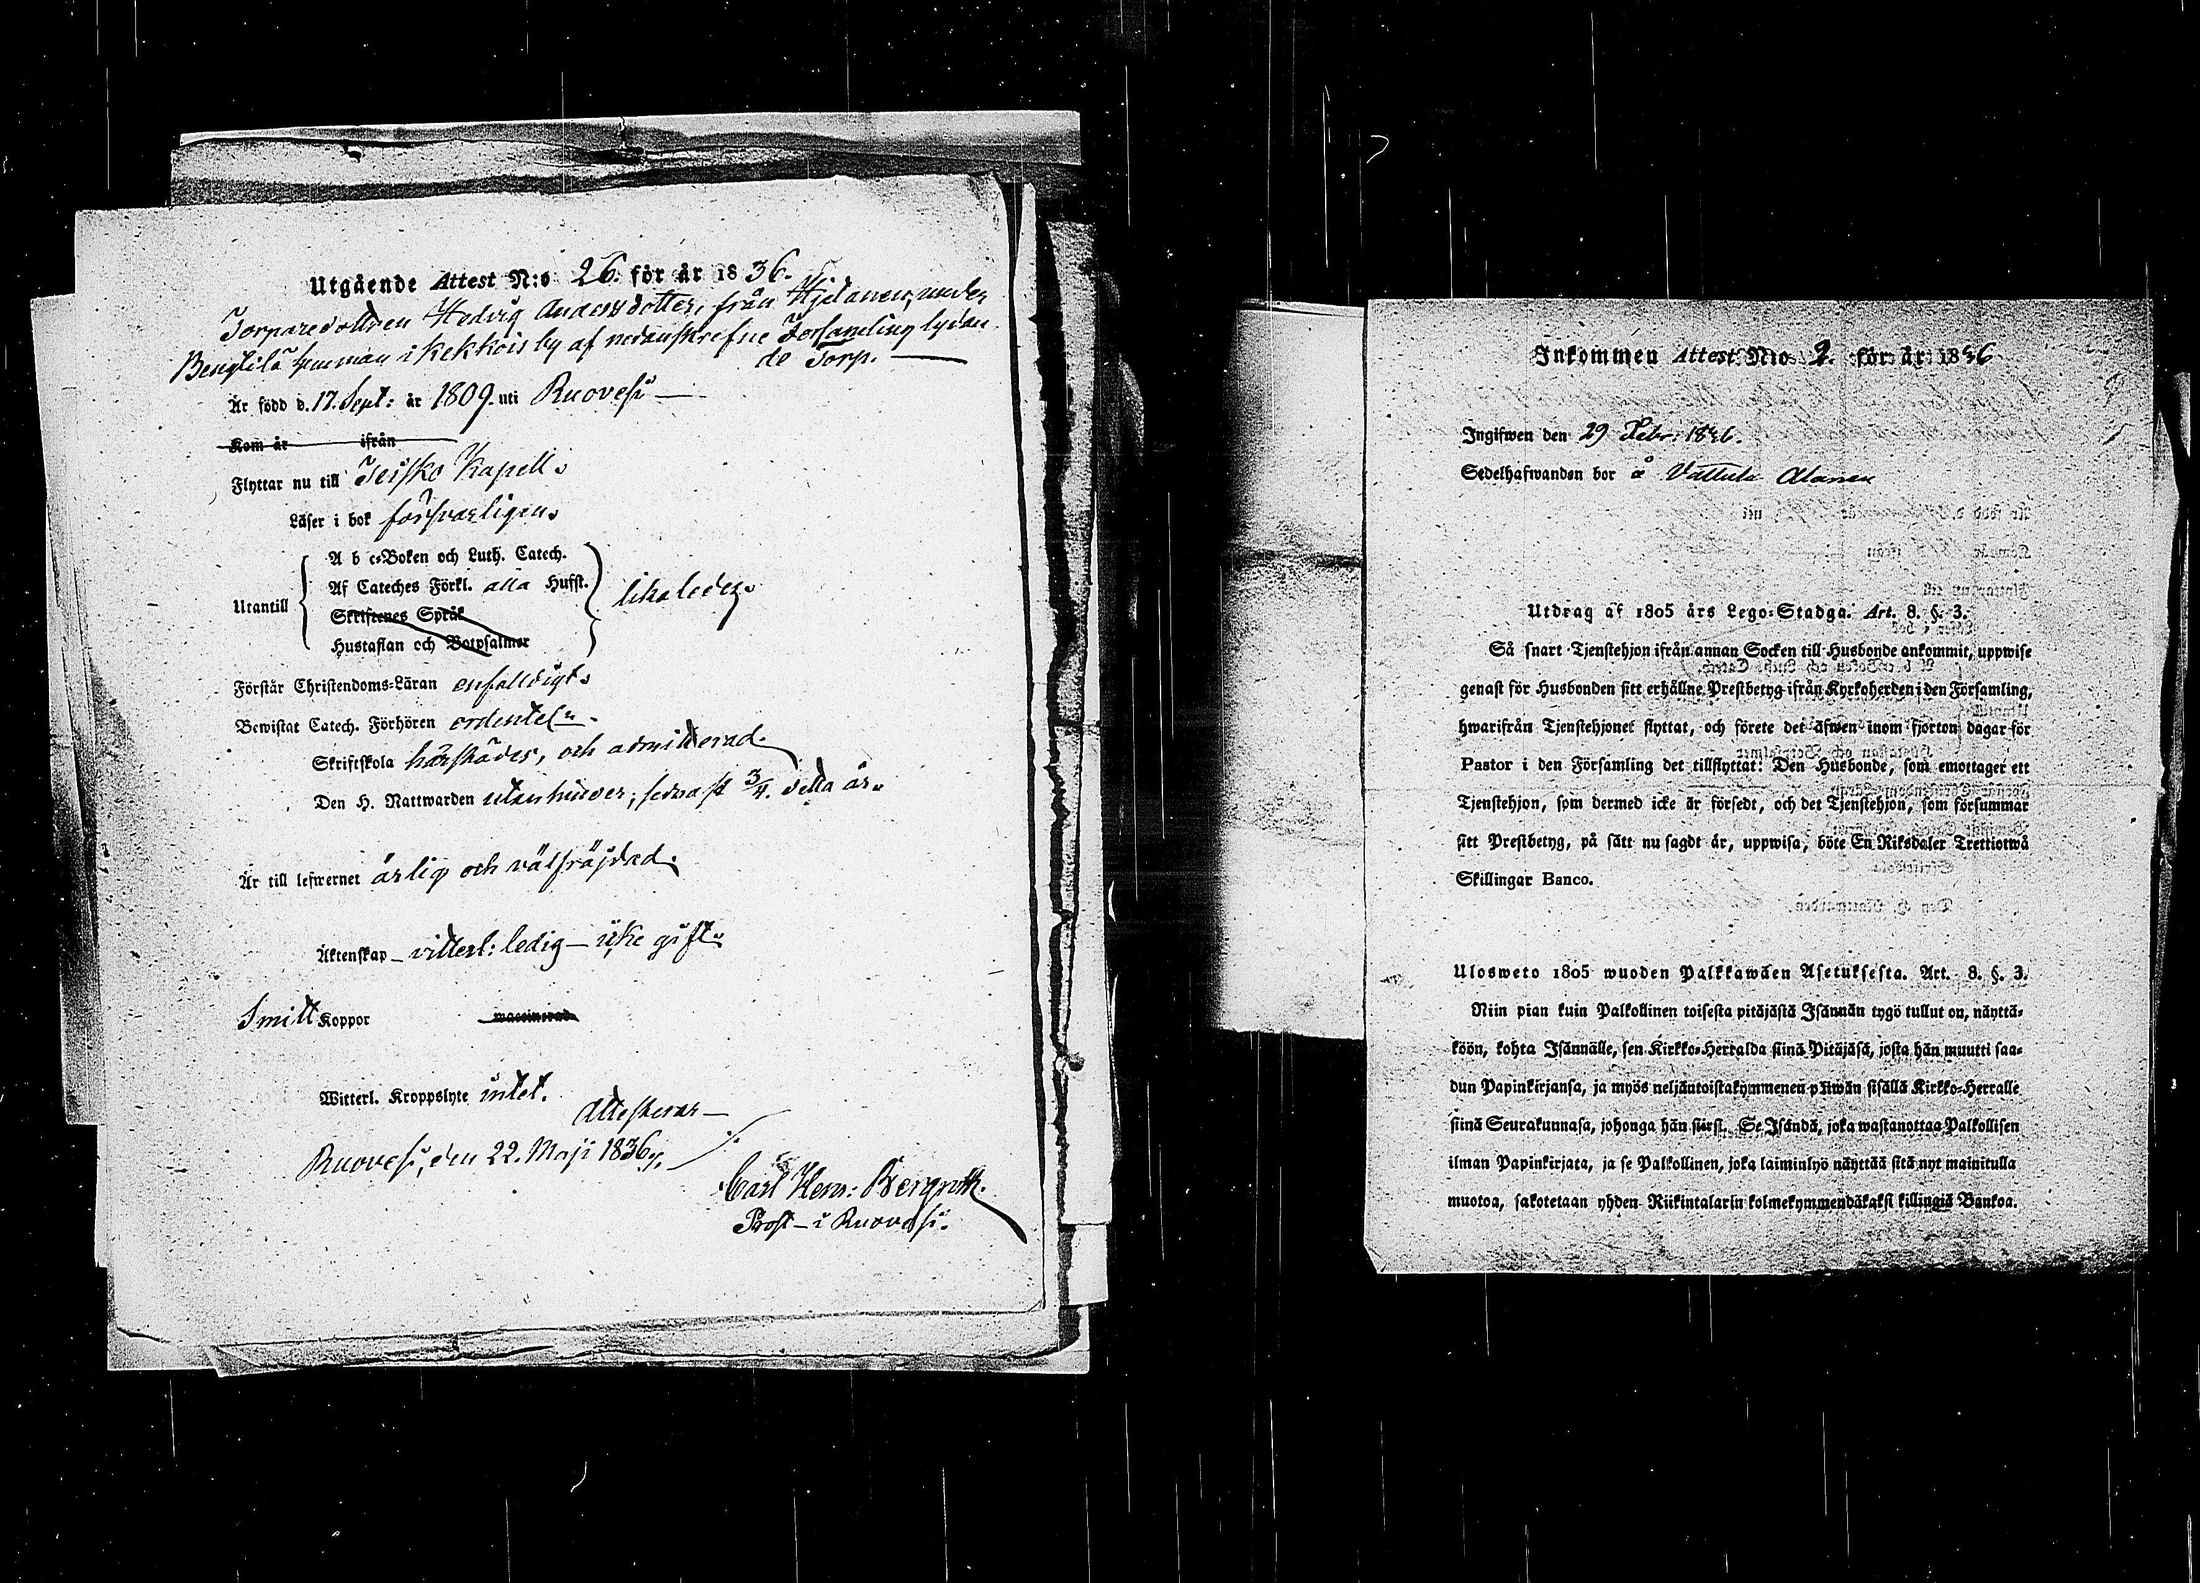 Utgående Attest N:o 26. för år 1836.
Torparedottren Hedvig Andersdotter, från Hjelanen, under
Bengtilä hemman i Kekkois by af nedanskrefne Församling lydan
de Torp.
Är född d. 17. Sept: år 1809. uti Ruovesi
Kom år ifrån
Flyttar nu till Teisko Kapell.
Läser i bok försvarligen.
A b c-Boken och Luth. Catech.
Af Cateches Förkl. alla Hufst.
Utantill likaledes.
Skriftenes Språk
Hustaflan och Botpsalmer
Förstår Christendoms-Läran enfalldigt.
Bewistat Catech. Förhören ordentel:n
Skriftskola härstädes, och admitterad.
Den H. Nattwarden utan hinder, sednast 3/4. detta år.
Är till lefwernet ärlig och välfräjdad.
Äktenskap vitterl: ledig icke gift.
Smitt Koppor waccinerad
Witterl. Kroppslyte intet.
Attesterar
Ruovesi, den 22. Maji 1836.
Carl Henr: Bergroth.
Prost i Ruovesi.
Inkommen Attest N:o 2. för år 1836
Ingifwen den 29 Febr: 1836.
Sedelhafwanden bor å Vattula Alanen
Utdrag af 1805 års Lego-Stadga. Art. 8. §. 3.
Så snart Tjenstehjon ifrån annan Socken till Husbonde ankommit, uppwise
genast för Husbonden sitt erhållne Prestbetyg ifrån Kyrkoherden i den Församling,
hwarifrån Tjenstehjonet flyttat, och förete det äfwen inom fjorton dagar för
Pastor i den Församling det tillflyttat: Den Husbonde, som emottager ett
Tjenstehjon, som dermed icke är försedt, och det Tjenstehjon, som försummar
sitt Prestbetyg, på sätt nu sagdt är, uppwisa, böte En Riksdaler Trettiotwå
Skillingar Banco.
Ulosweto 1805 wuoden Palkkawäen Asetuksesta. Art. 8. §. 3.
Niin pian kuin Palkollinen toisesta pitäjästä Isännän tygö tullut on, näyttä-
köön, kohta Isännälle, sen Kirkko-Herralda siinä Pitäjäsä, josta hän muutti saa-
dun Papinkirjansa, ja myös neljäntoistakymmenen päiwän sisällä Kirkko-Herralle
siinä Seurakunnasa, johonga hän siirsi. Se Isändä, joka wastanottaa Palkollisen
ilman Papinkirjata, ja se Palkollinen, joka laiminlyö näyttää sitä nyt mainitulla
muotoa, sakotetaan yhden Riikintalarin kolmekymmendäkaksi killingiä Bankoa.